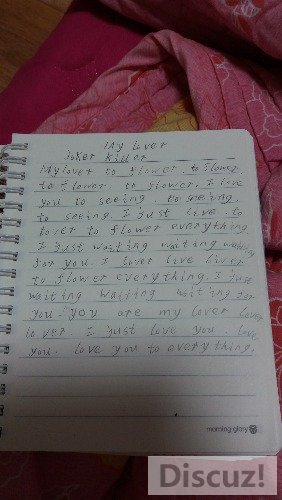 My Lover
Joker Killer
My lover to flower. to flower
to flower to flower. I live
you to seeing. to seeing
to seeing. I just live to
lover to flower everything
I just waiting waiting waiting
for you. I lover live living
to flower everything. I just
waiting waiting waiting for
you. you are my lover lover
lover. I just love you. love
you. love you to everything.
morning glory
Discuz!